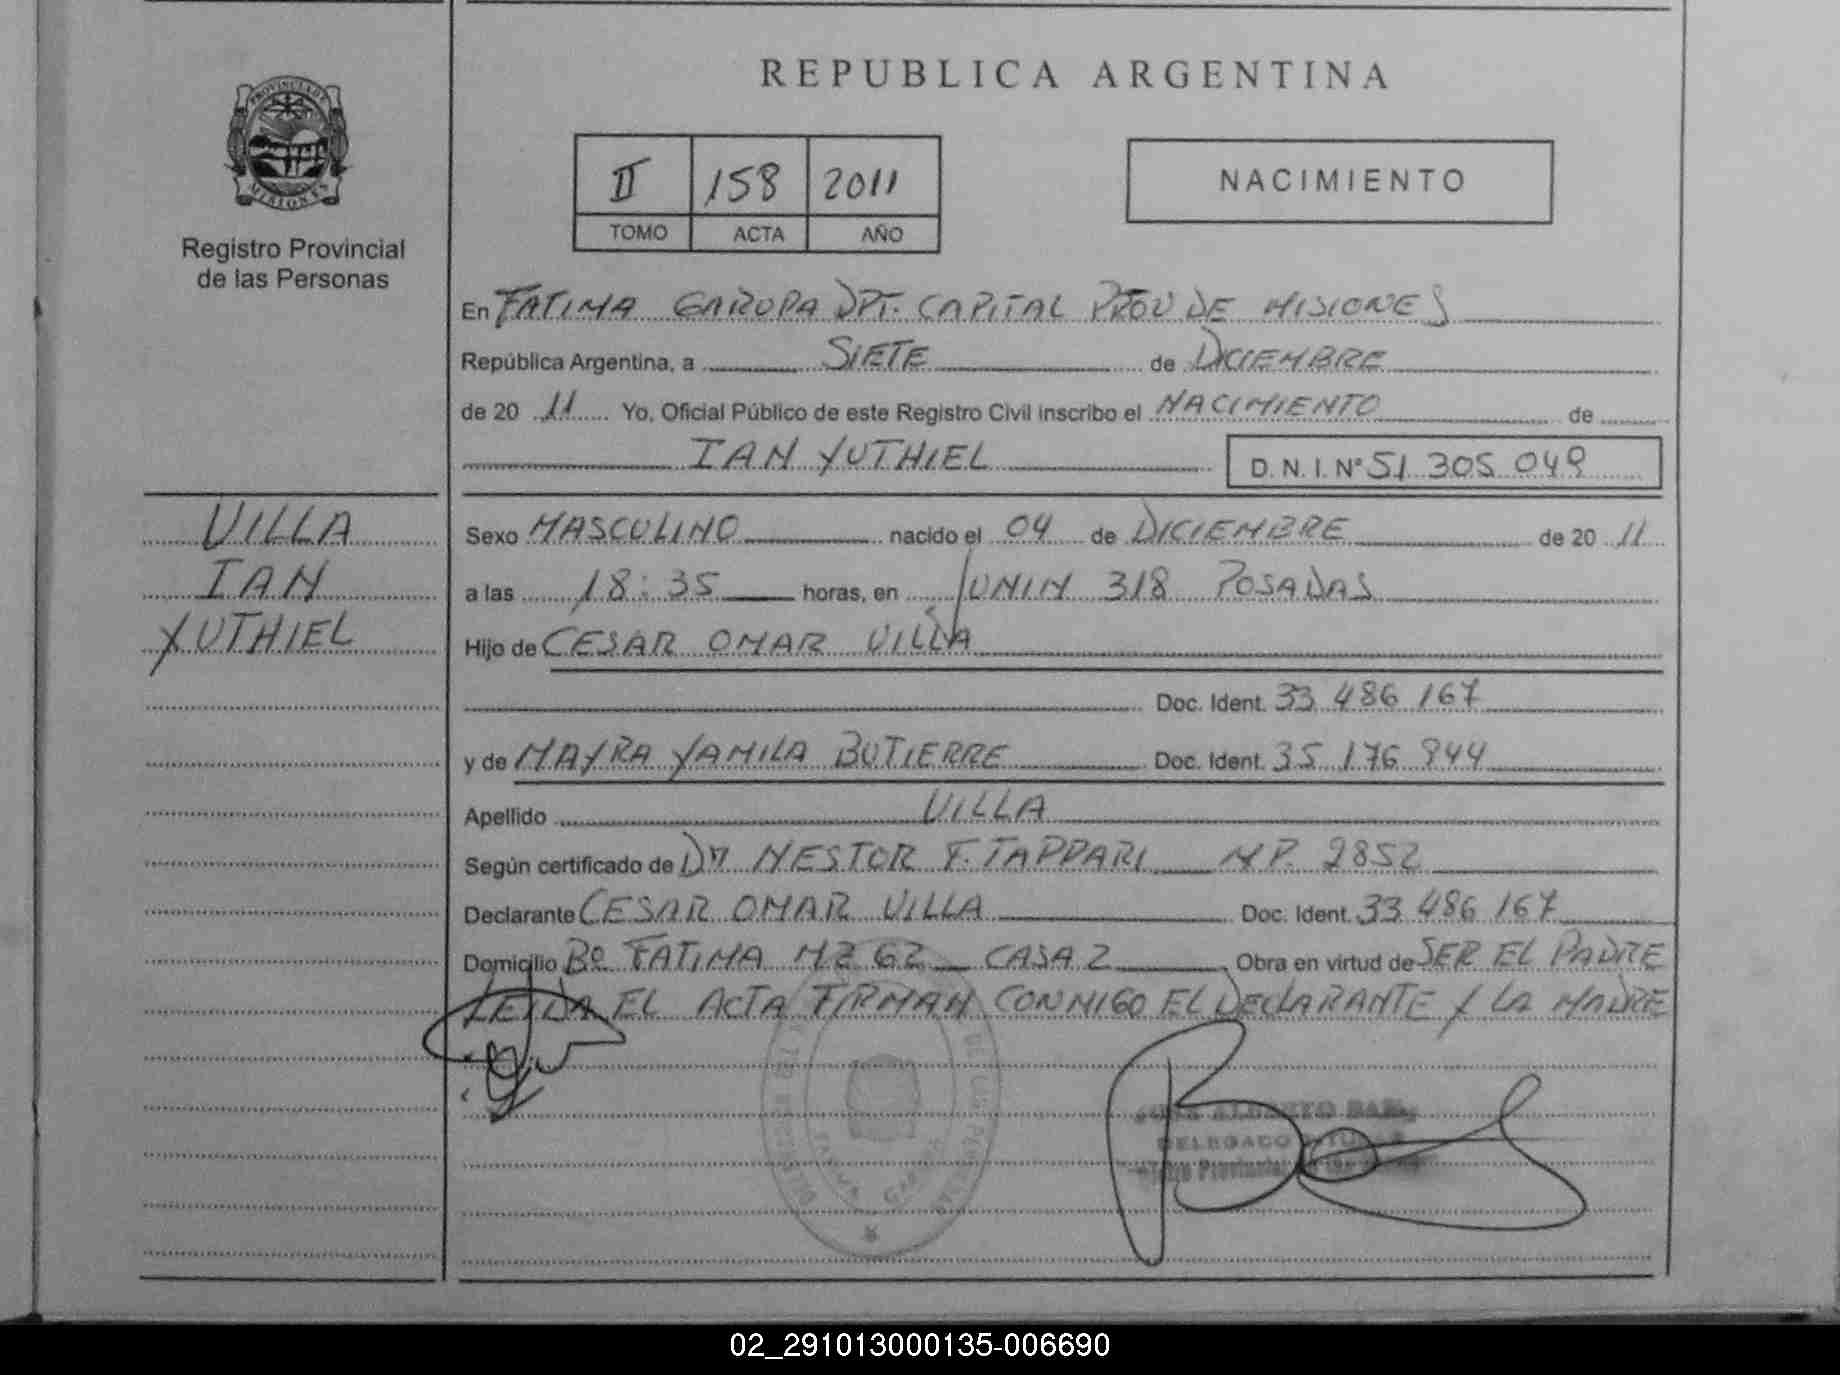 REPUBLICA ARGENTINA
PROVINCIA DE
MISIONES
Registro Provincial
de las Personas
II 158 2011
TOMO ACTA AÑO
NACIMIENTO
En FATIMA GARUPA DPT. CAPITAL PROV DE MISIONES
República Argentina, a SIETE de DICIEMBRE
de 20 11 Yo, Oficial Público de este Registro Civil inscribo el NACIMIENTO de
IAN YUTHIEL D.N.I. Nº 51 305 049
VILLA
IAN
YUTHIEL
Sexo MASCULINO nacido el 04 de DICIEMBRE de 20 11
a las 18:35 horas, en JUNIN 318 POSADAS
Hijo de CESAR OMAR VILLA
Doc. Ident. 33 486 167
y de MAYRA YAMILA BUTIERRE Doc. Ident. 35 176 944
Apellido VILLA
Según certificado de Dr NESTOR F. TAPPARI M.P. 2852
Declarante CESAR OMAR VILLA Doc. Ident. 33 486 167
Domicilio Bº FATIMA MZ 62 CASA 2 Obra en virtud de SER EL PADRE
LEIDA EL ACTA FIRMAN CONMIGO EL DECLARANTE Y LA MADRE
ALBERTO
DELEGADO TITULAR
Provincial de las
02_291013000135-006690